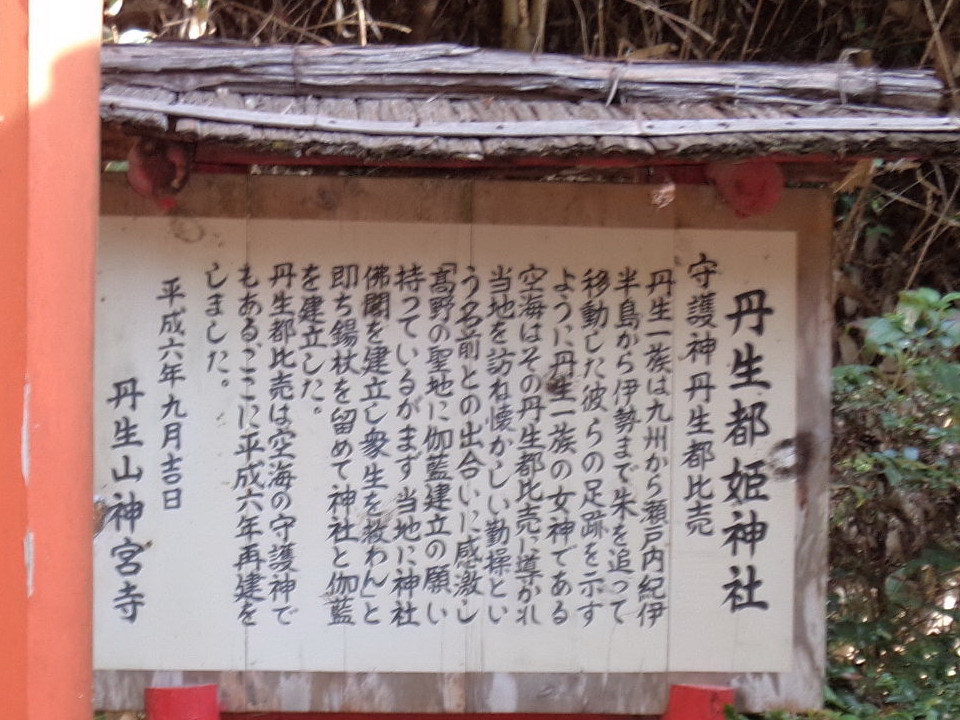 丹生都姫神社
守護神丹生都比売
丹生一族は九州から瀬戸内紀伊
半島から伊勢まで朱を追って
移動した彼らの足跡を示す
ように丹生一族の女神である
空海はその丹生都比売に導かれ
当地を訪ね懐かしい勤操とい
う名前との出合いに感激し
「高野の聖地に伽藍建立の願い
持っているがまず当地に神社
佛閣を建立し衆生を救わん」と
即ち錫杖を留めて神社と伽藍
を建立した。
丹生都比売は空海の守護神で
もある、ここに平成六年再建を
しました。
平成六年九月吉日
丹生山神宮寺